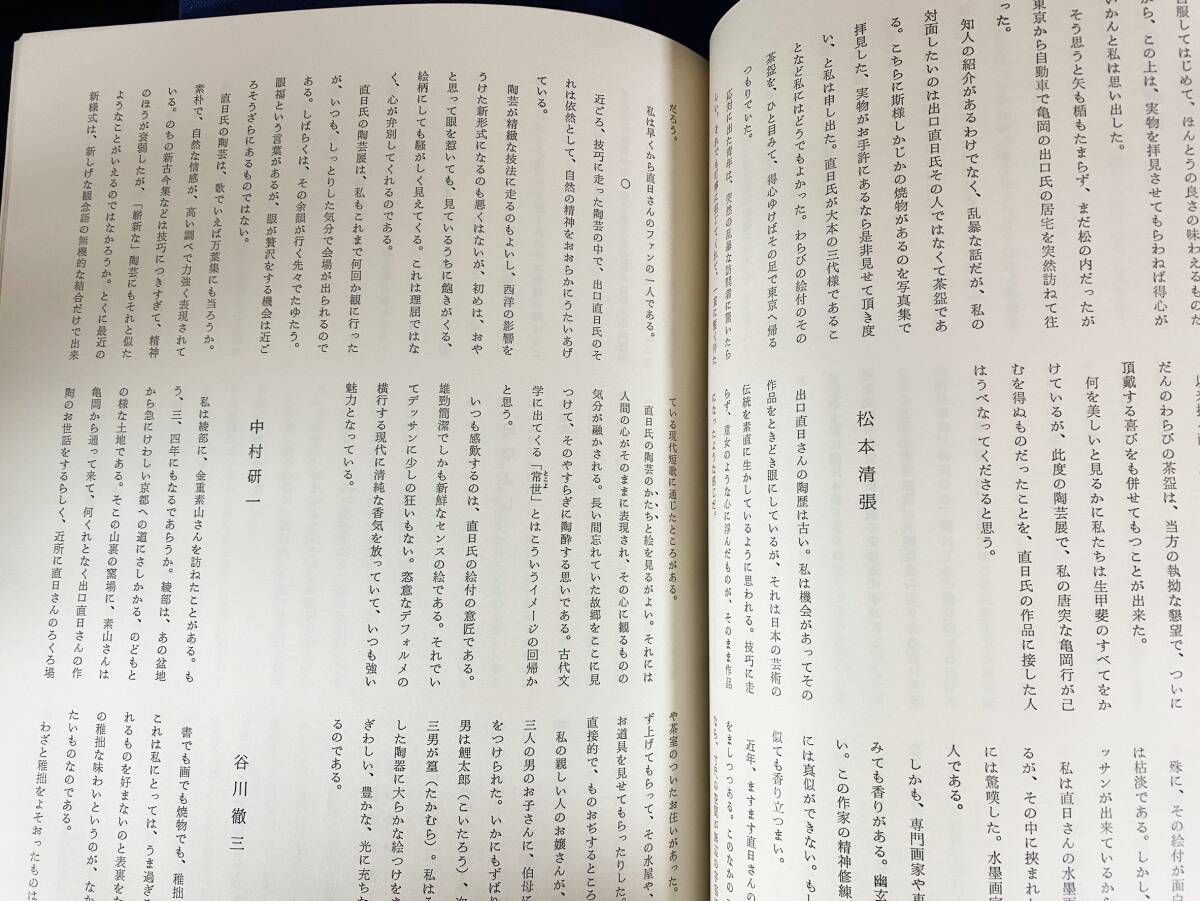 服してはじめて、ほんとうの良さの味わえるものだ
から、この上は、実物を拝見させてもらわねば得心が
いかんと私は思い出した。
そう思うと矢も楯もたまらず、まだ松の内だったが
東京から自動車で亀岡の出口氏の居宅を突然訪ねて往
った。
知人の紹介があるわけでなく、乱暴な話だが、私の
対面したいのは出口直日氏その人ではなくて茶盌であ
る。こちらに斯様しかじかの焼物があるのを写真集で
拝見した、実物がお手許にあるなら是非見せて頂き度
い、と私は申し出た。直日氏が大本の三代様であるこ
となど私にはどうでもよかった。わらびの絵付のその
茶盌を、ひと目みて、得心ゆけばその足で東京へ帰る
つもりでいた。
応対に出た青年は、突然の乱暴な訪問者に驚いたら
だんのわらびの茶盌は、当方の執拗な懇望で、ついに
頂戴する喜びをも併せてもつことが出来た。
何を美しいと見るかに私たちは生甲斐のすべてをか
けているが、此度の陶芸展で、私の唐突な亀岡行が已
むを得ぬものだったことを、直日氏の作品に接した人
はうべなってくださると思う。
松本清張
出口直日さんの陶歴は古い。私は機会があってその
作品をときどき眼にしているが、それは日本の芸術の
伝統を素直に生かしているように思われる。技巧に走
らず、童女のような心に浮んだものが、そのまま作品
になったような感じだ。
殊に、その絵付が面白
は枯淡である。しかし、
ッサンが出来ているから
私は直日さんの水墨画
るが、その中に挟まれ
には驚嘆した。水墨画
人である。
しかも、専門画家や専
みても香りがある。幽玄
い。この作家の精神修練
には真似ができない。もし
似ても香り立つまい。
近年、ますます直日さんの
をましつつある。このなかの
だろう。
私は早くから直日さんのファンの一人である。
○
近ごろ、技巧に走った陶芸の中で、出口直日氏のそ
れは依然として、自然の精神をおおらかにうたいあげ
ている。
陶芸が精緻な技法に走るのもよいし、西洋の影響を
うけた新形式になるのも悪くはないが、初めは、おや
と思って眼を惹いても、見ているうちに飽きがくる、
絵柄にしても騒がしく見えてくる。これは理屈ではな
く、心が弁別してくれるのである。
直日氏の陶芸展は、私もこれまで何回か観に行った
が、いつも、しっとりした気分で会場が出られるので
ある。しばらくは、その余韻が行く先々でたゆたう。
眼福という言葉があるが、眼が贅沢をする機会は近ご
ろそうざらにあるものではない。
直日氏の陶芸は、歌でいえば万葉集にも当ろうか。
素朴で、自然な情感が、高い調べで力強く表現されて
いる。のちの新古今集などは技巧につきすぎて、精神
のほうが衰弱したが、「嶄新な」陶芸にもそれと似た
ようなことがいえるのではなかろうか。とくに最近の
新様式は、新しげな観念語の無機的な結合だけで出来
ている現代短歌に通じたところがある。
直日氏の陶芸のかたちと絵を見るがよい。それには
人間の心がそのままに表現され、その心に観るものの
気分が融かされる。長い間忘れていた故郷をここに見
つけて、そのやすらぎに陶酔する思いである。古代文
学に出てくる「常世」とはこういうイメージの回帰か
と思う。
いつも感歎するのは、直日氏の絵付の意匠である。
雄勁簡潔でしかも新鮮なセンスの絵である。それでい
てデッサンに少しの狂いもない。恣意なデフォルメの
横行する現代に清純な香気を放っていて、いつも強い
魅力となっている。
中村研一
私は綾部に、金重素山さんを訪ねたことがある。も
う、三、四年にもなるであらうか。綾部は、あの盆地
から急にけわしい京都への道にさしかかる、のどもと
の様な土地である。そこの山裏の窯場に、素山さんは
亀岡から通って来て、何くれとなく出口直日さんの作
陶のお世話をするらしく、近所に直日さんのろくろ場
や茶室のついたお住いがあった。
ず上げてもらって、その水屋や、
お道具を見せてもらったりした。
直接的で、ものおぢするところ
私の親しい人のお嬢さんが、
三人の男のお子さんに、伯母に
をつけられた。いかにもずば
男は鯉太郎（こいたろう）、次
三男が篁（たかむら）。私は
した陶器に大らかな絵つけを
ぎわしい、豊かな、光に充ち
るのである。
谷川徹三
書でも画でも焼物でも、稚拙
これは私にとっては、うま過ぎ
れるものを好まないのと表裏を
の稚拙な味わいというのが、なか
たいものなのである。
わざと稚拙をよそおったものは